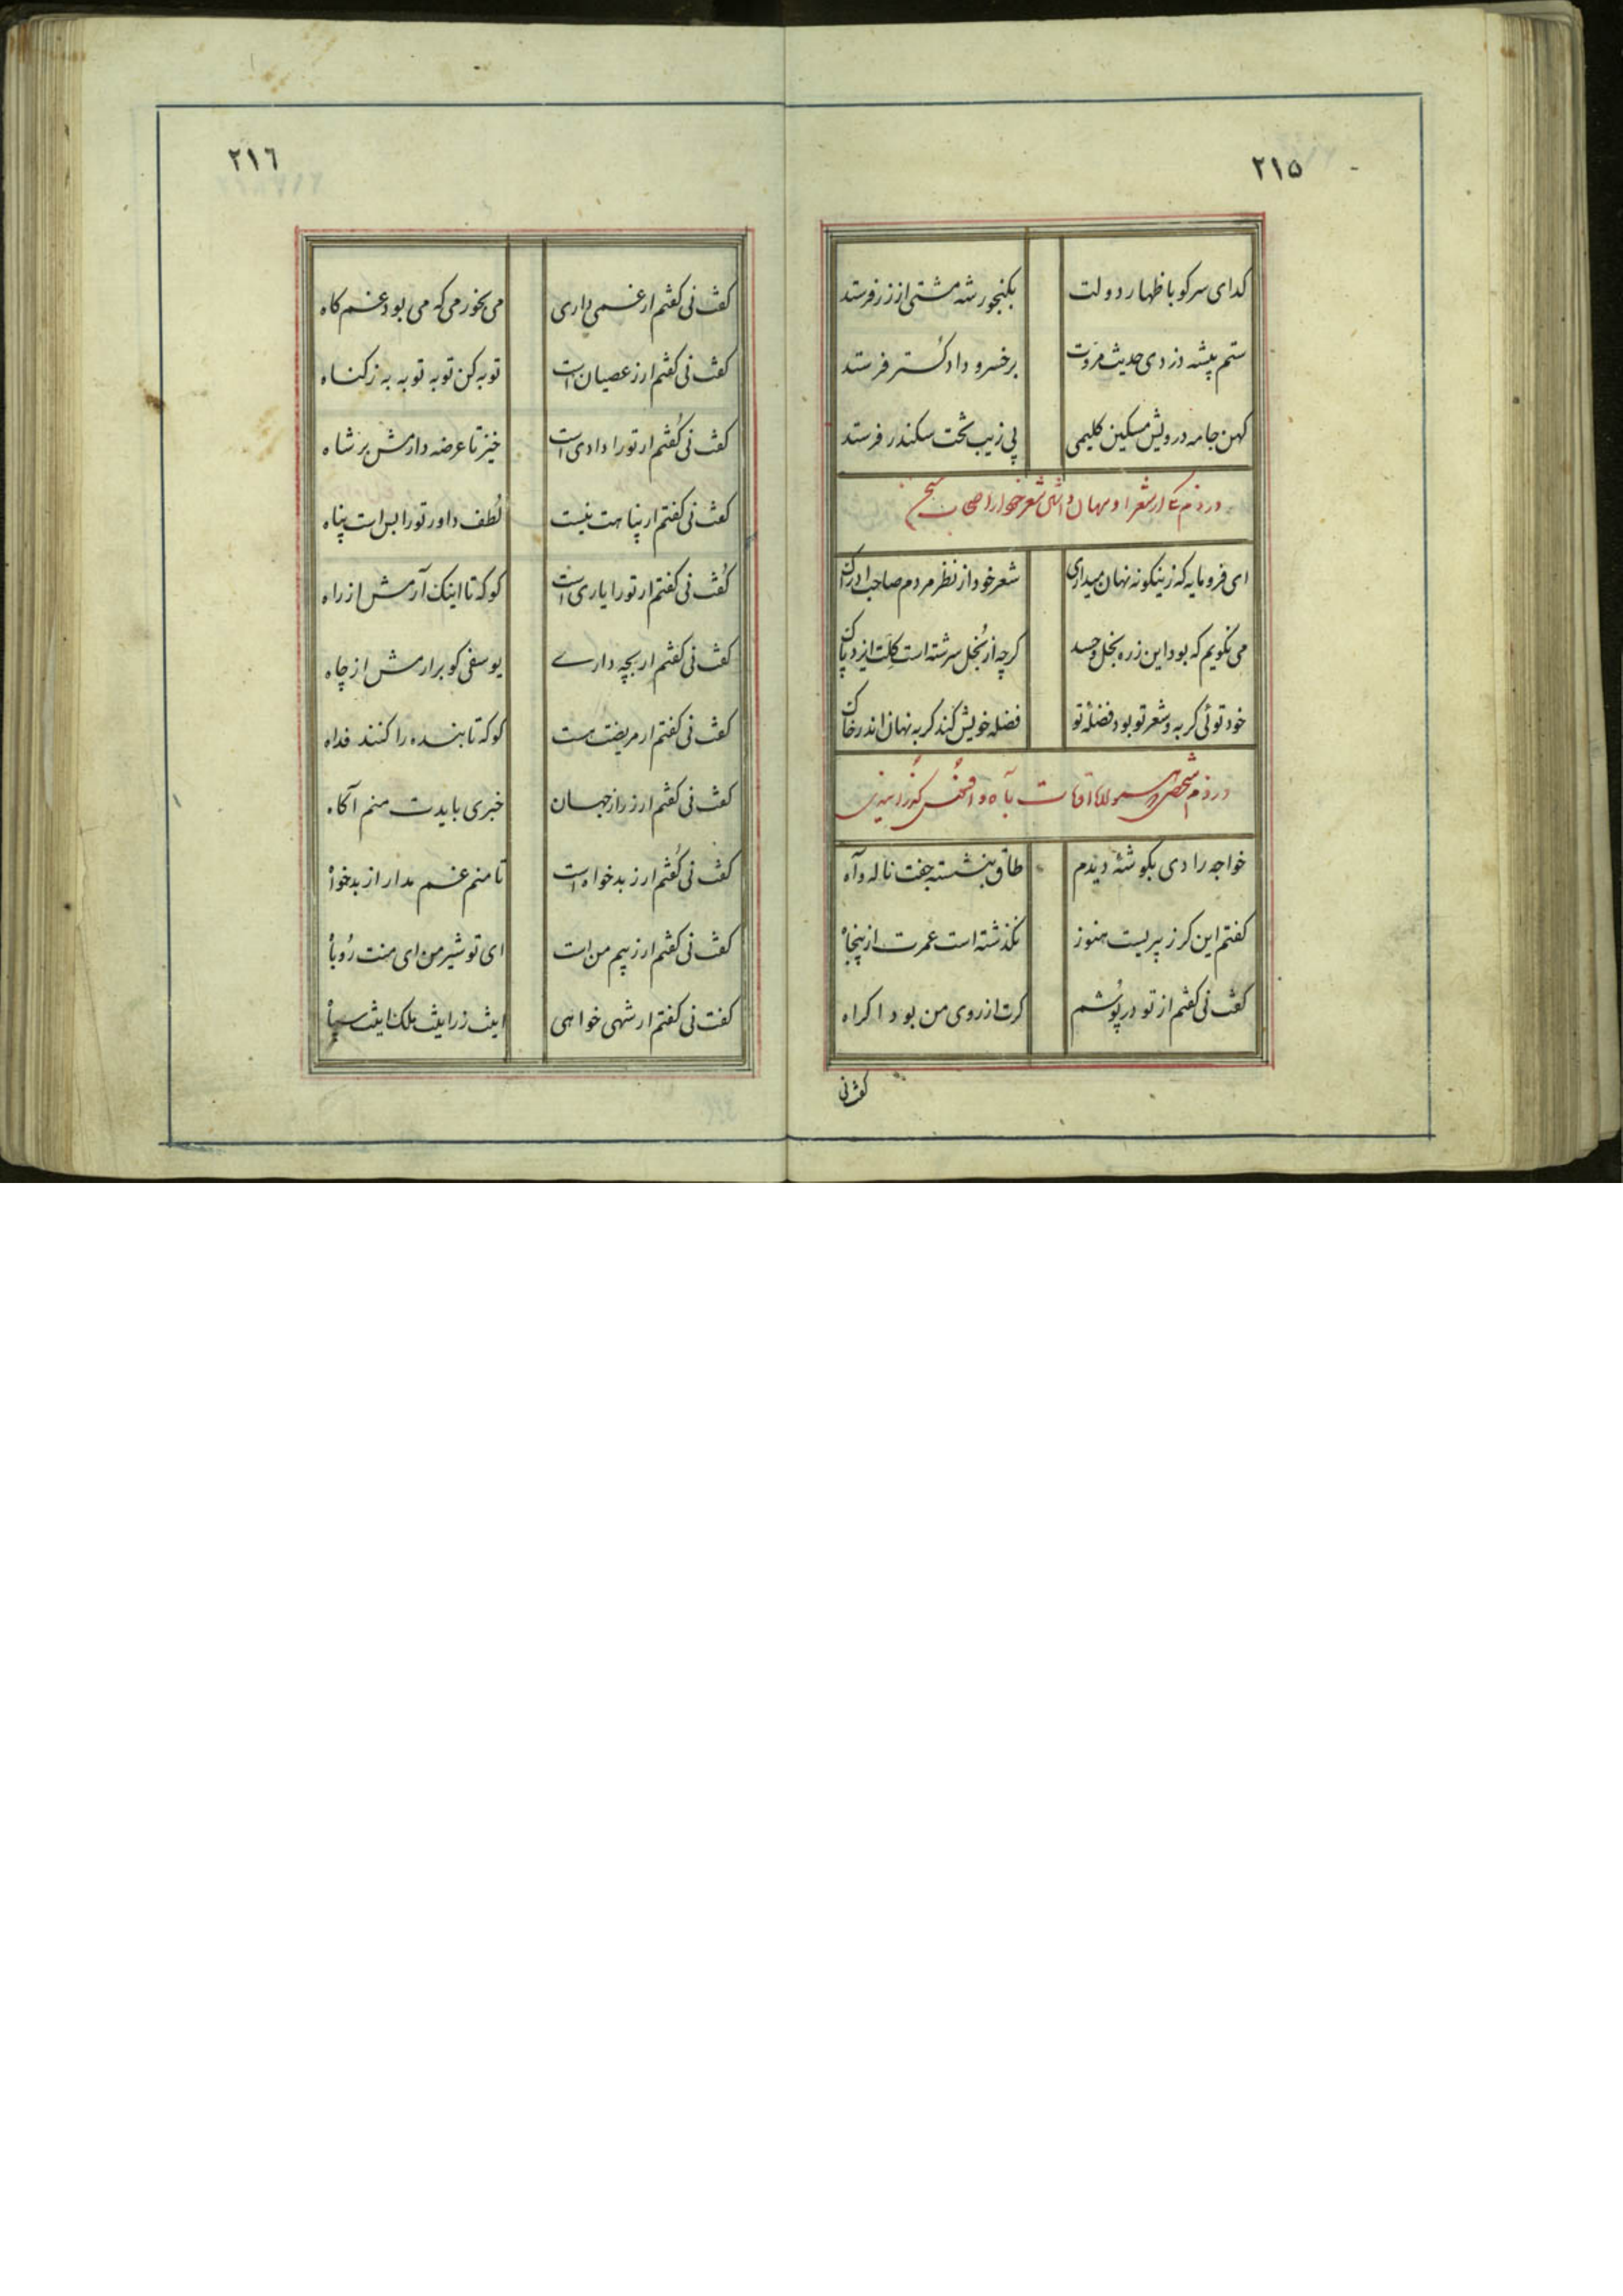 ۲۱۵
کدای سرکو باظهار دولت بکنجور شه مشتی از زر فرستد
ستم پیشه دزدی حدیث مروت بر خسرو دادکستر فرستد
کهن جامه درویش مسکین کلیمی پی زیب تخت سکندر فرستد
در ذم شعر
ای فرومایه که زینکونه نهان میداری شعر خود از نظر مردم صاحب ادراک
می نکویم که بود این زره بخل و حسد کرچه از بخل سرشته است کلت ایزد پاک
خود توئی کربه و شعر تو بود فضلهٔ تو فضله خویش کند کربه نهان اندر خاک
در ذم
خواجه را دی بکوشهٔ دیدم طاق بنشسته جفت ناله و آه
کفتم این کر ز پیریست هنوز نکذشته است عمرت از پنجاه
کفت نی کفتم از تو در پوشم کرت از روی من بود اکراه
کفت نی
۲۱٦
کفت نی کفتم ار غمی داری می بخور می که می بود غم کاه
کفت نی کفتم ارز عصیان است توبه کن توبه توبه به ز کناه
کفت نی کفتم ار تو را دادی است خیز تا عرضه دارمش بر شاه
کفت نی کفتم ار پناهت نیست لطف داور تو را بس است پناه
کفت نی کفتم ار تو را یاری است کو که تا اینک آرمش از راه
کفت نی کفتم ار بچه داری یوسفی کو برارمش از چاه
کفت نی کفتم ار مریضت هست کو که تا بنده را کنند فداه
کفت نی کفتم ارز راز جهان خبری بایدت منم آکاه
کفت نی کفتم ارز بدخواه است تا منم غم مدار از بدخواه
کفت نی کفتم ارز بیم من است ای تو شیر من ای منت روباه
کفت نی کفتم ار شهی خواهی اینت زر اینت ملک اینت سپاه